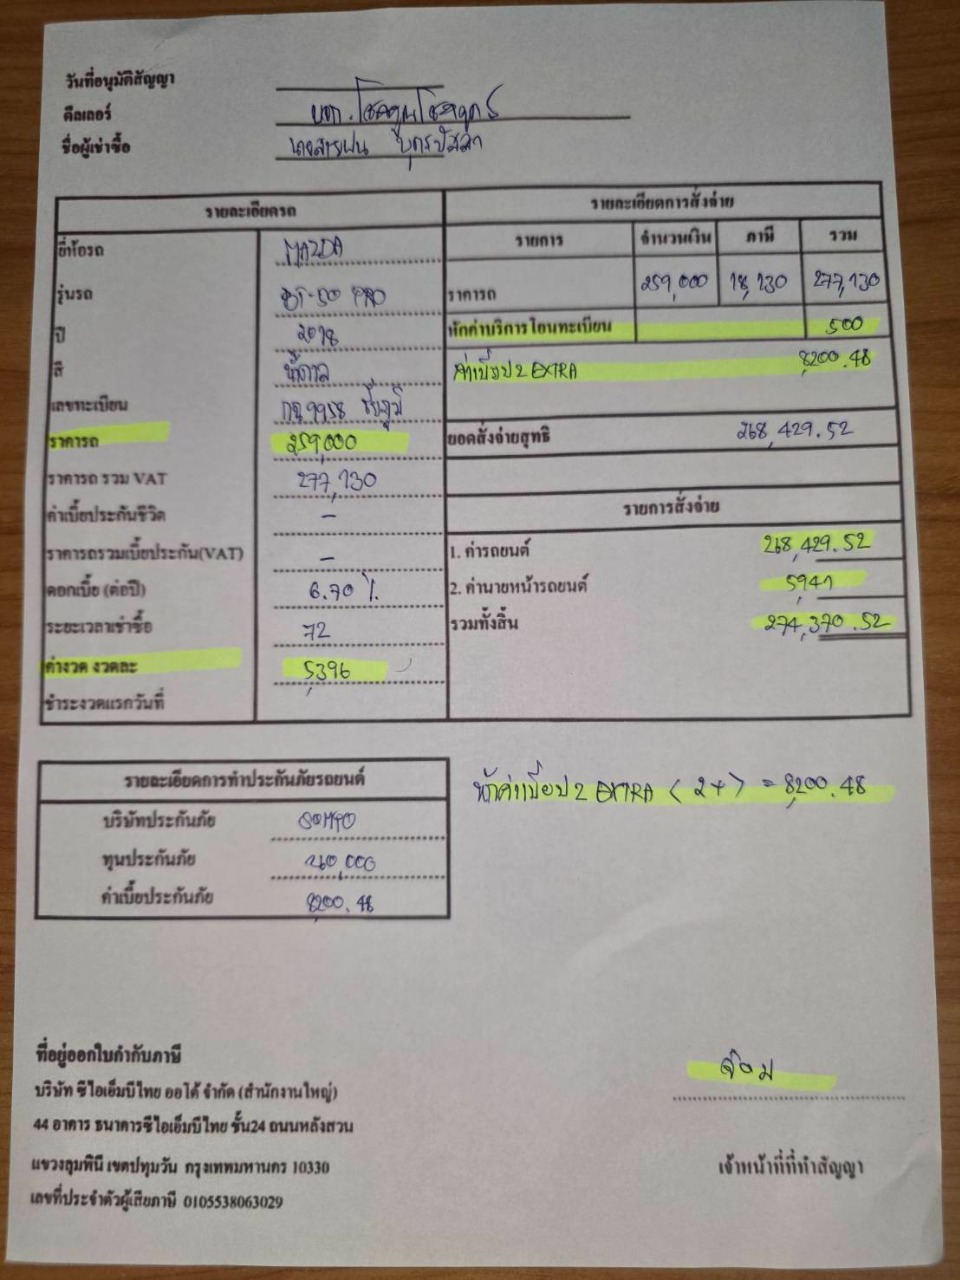 วันที่อนุมัติสัญญา
ดีลเลอร์ บจก. โชคคูณโชค
ชื่อผู้เช่าซื้อ บุตรปัสสา
รายละเอียดรถ
ยี่ห้อรถ MAZDA
รุ่นรถ BT-50 PRO
ปี 2018
สี น้ำตาล
เลขทะเบียน 9958 ชัยภูมิ
ราคารถ 259,000
ราคารถ รวม VAT 277,130
ค่าเบี้ยประกันชีวิต -
ราคารถรวมเบี้ยประกัน(VAT) -
ดอกเบี้ย (ต่อปี) 6.70 %
ระยะเวลาเช่าซื้อ 72
ค่างวด งวดละ 5,396
ชำระงวดแรกวันที่
รายละเอียดการสั่งจ่าย
รายการ จำนวนเงิน ภาษี รวม
ราคารถ 259,000 18,130 277,130
หักค่าบริการโอนทะเบียน 500
ค่าเบี้ย ป2 EXTRA 8,200.48
ยอดสั่งจ่ายสุทธิ 268,429.52
รายการสั่งจ่าย
1. ค่ารถยนต์ 268,429.52
2. ค่านายหน้ารถยนต์ 5,941
รวมทั้งสิ้น 274,370.52
รายละเอียดการทำประกันภัยรถยนต์
บริษัทประกันภัย SOMPO
ทุนประกันภัย
ค่าเบี้ยประกันภัย 8,200.48
หักค่าเบี้ย ป2 EXTRA (2+) = 8,200.48
ที่อยู่ออกใบกำกับภาษี
บริษัท ซีไอเอ็มบีไทย ออโต้ จำกัด (สำนักงานใหญ่)
44 อาคาร ธนาคารซีไอเอ็มบีไทย ชั้น24 ถนนหลังสวน
แขวงลุมพินี เขตปทุมวัน กรุงเทพมหานคร 10330
เลขที่ประจำตัวผู้เสียภาษี 0105538063029
จ๋อม
เจ้าหน้าที่ที่ทำสัญญา